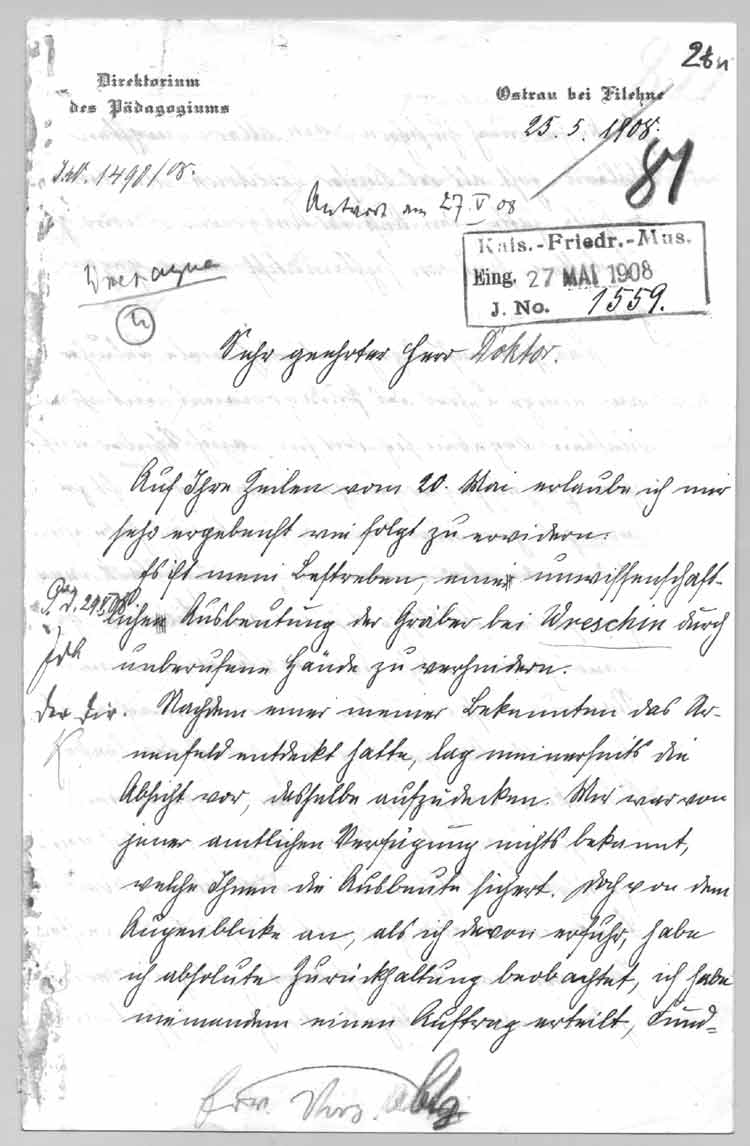 Direktorium
des Pädagogiums
Ostrau bei Filehne
25. 5. 1908.
J.N. 1498/08.
81
Antwort am 27. V 08
Kais.-Friedr.-Mus.
Eing. 27 MAI 1908
J. No. 1559.
Sehr geehrter Herr Doktor.
Auf Ihre Zeilen vom 20. Mai erlaube ich mir
sehr ergebenst wie folgt zu erwidern:
Es ist mein Bestreben, eine unwissenschaft-
liche Ausbeutung der Gräber bei Wreschin durch
unberufene Hände zu verhindern.
Nachdem einer meiner Bekannten das Ur-
nenfeld entdeckt hatte, lag meinerseits die
Absicht vor, dasselbe aufzudecken. Mir war von
jener amtlichen Verfügung nichts bekannt,
welche Ihnen die Ausbeute sichert. Doch von dem
Augenblicke an, als ich davon erfuhr, habe
ich absolute Zurückhaltung beobachtet, ich habe
niemandem einen Auftrag erteilt, Fund-
Der Dir.